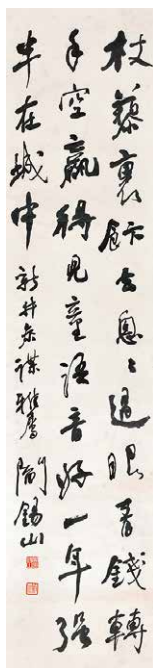 杖藜裹飯去怱々過眼青錢轉
手空贏得兒童語音好一年强
半在城中 新井參謀雅屬 閻錫山